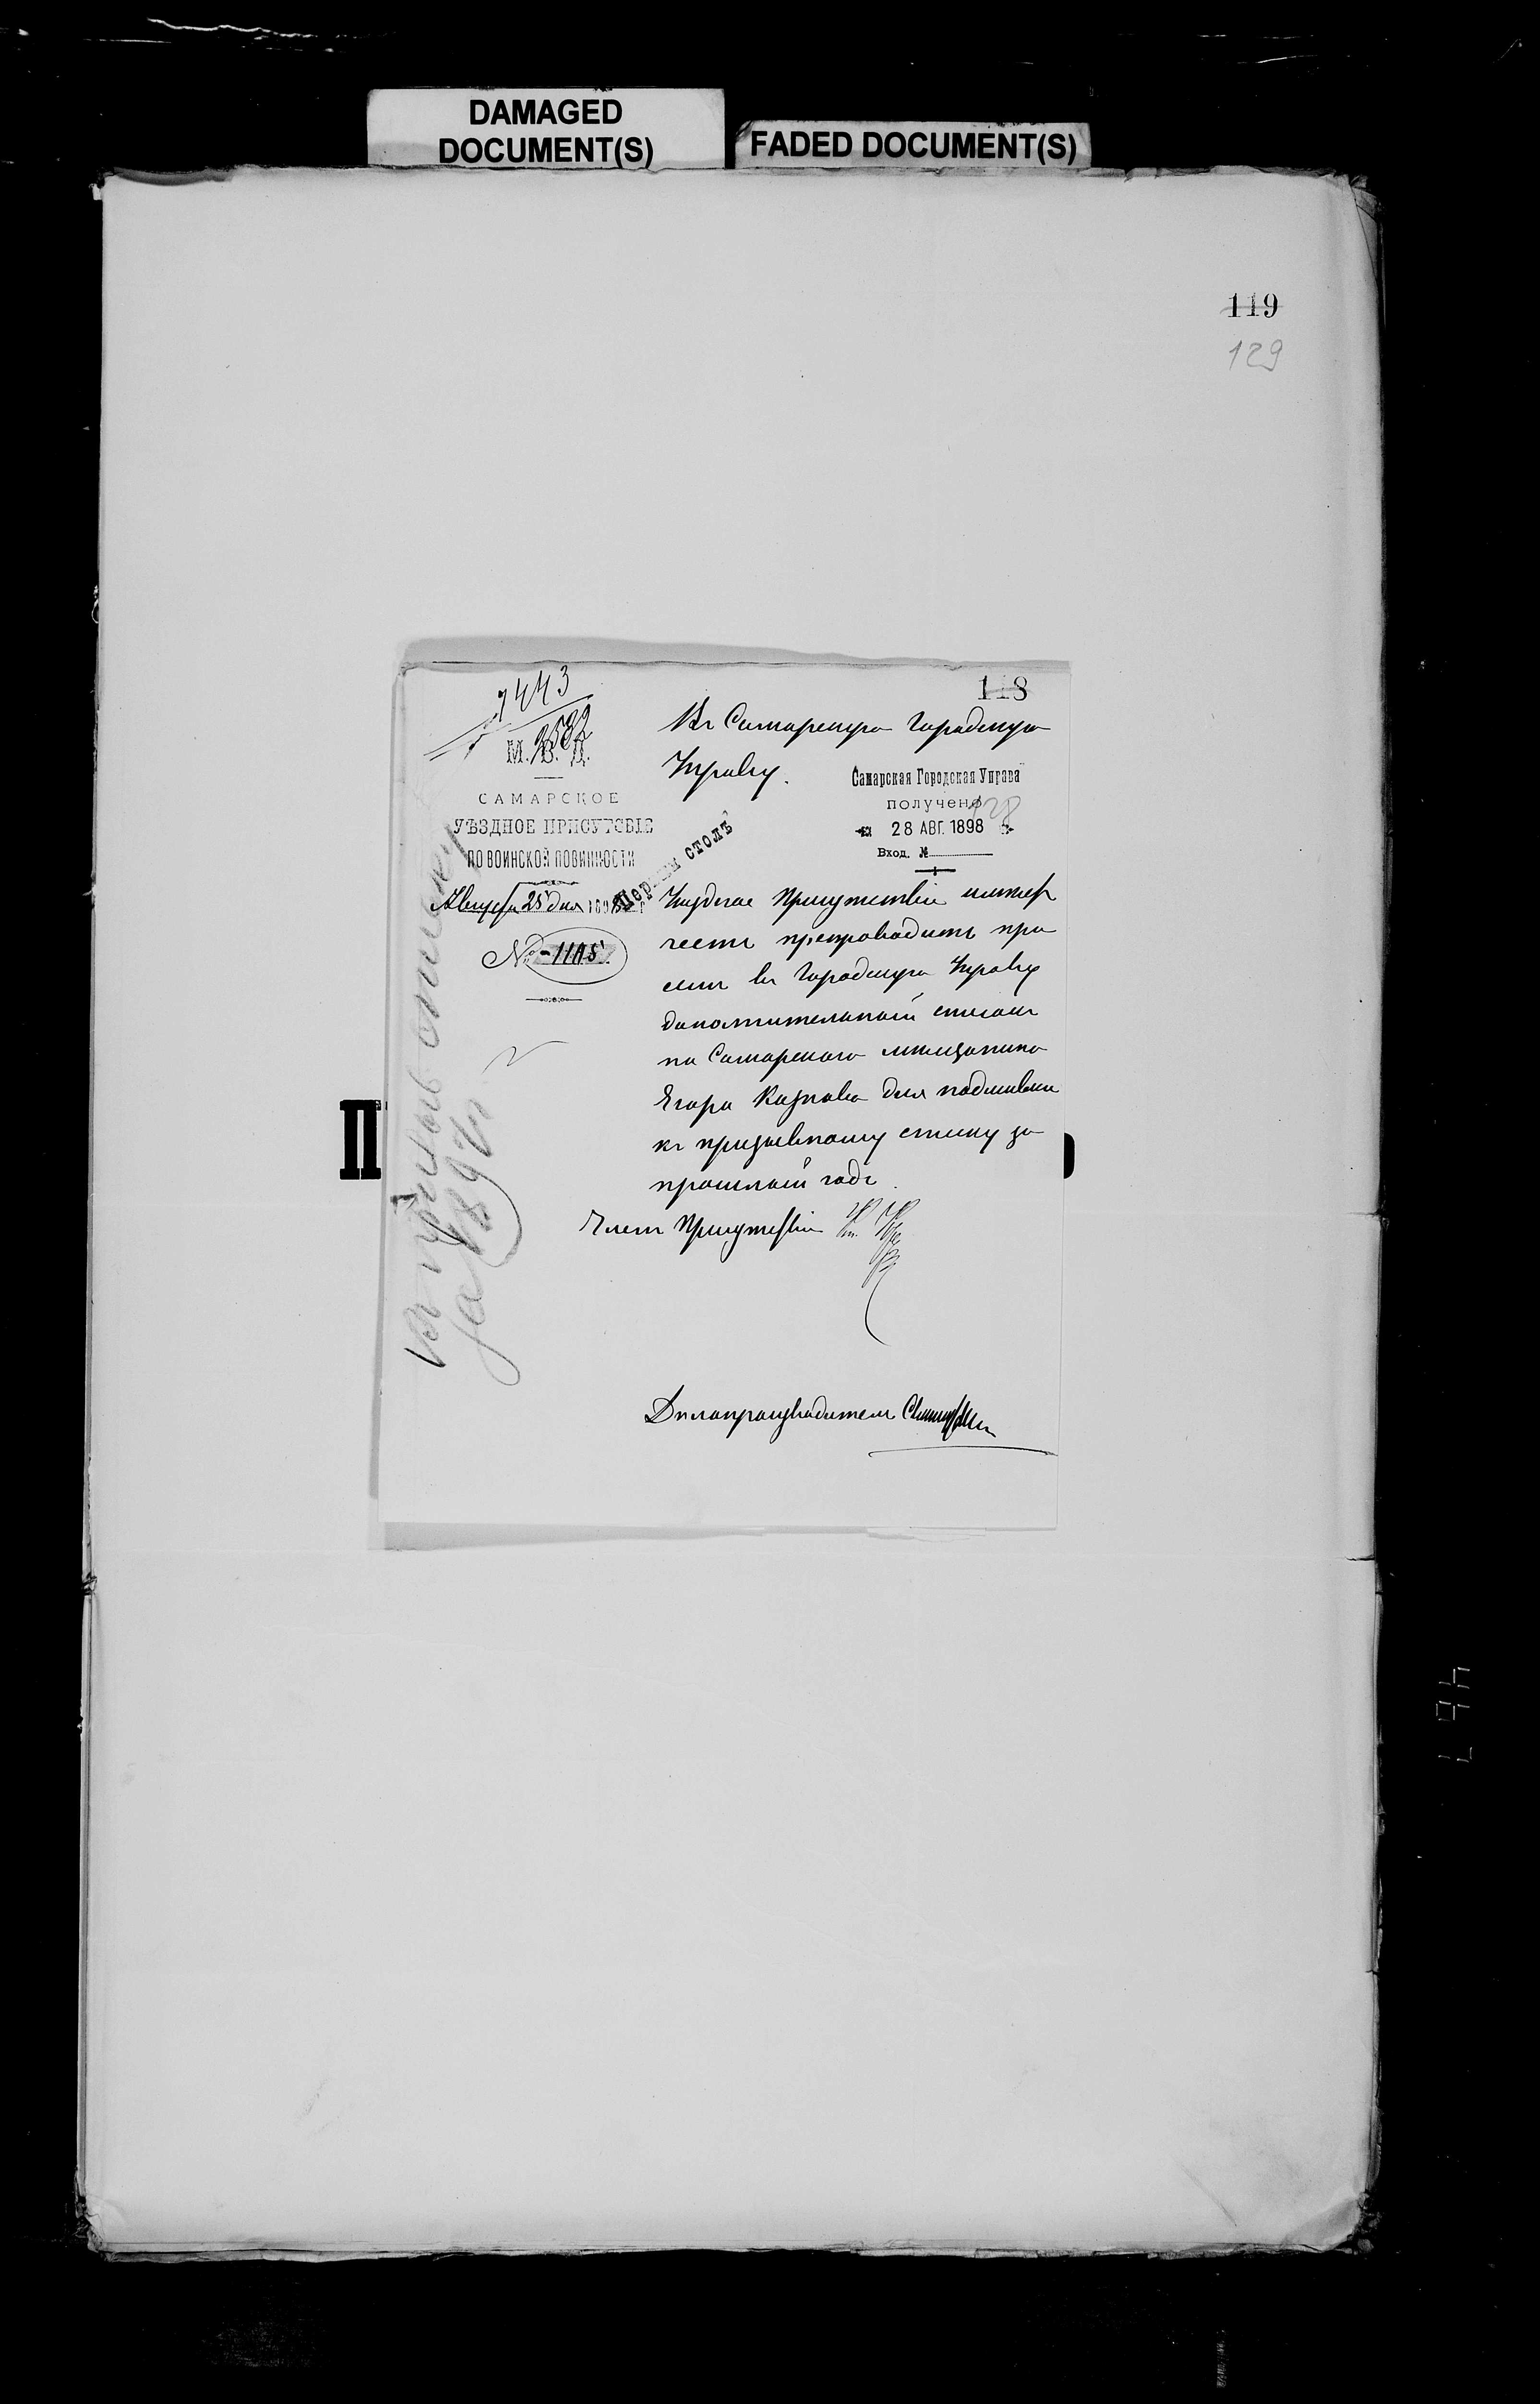 DAMAGED
DOCUMENT(S)
FADED DOCUMENT(S)
119
129
118
7443
2582
М. В. Д.
САМАРСКОЕ
УѢЗДНОЕ ПРИСУТСВІЕ
ПО ВОИНСКОЙ ПОВИННОСТИ
Августа 25 дня 1898 г
№ 1105
Первый столъ
Въ Самарскую Городскую
Управу.
Самарская Городская Управа
получено
28 АВГ. 1898
128
Вход. №
Уѣздное Присутствіе имѣетъ
честь препроводить при
семъ въ Городскую Управу
дополнительный списокъ
на Самарскаго мѣщанина
Егора Казнова для подшивки
къ призывному списку за
прошлый годъ.
Членъ Присутствія
Дѣлопроизводитель
Къ призыв
за 1897 г.
II